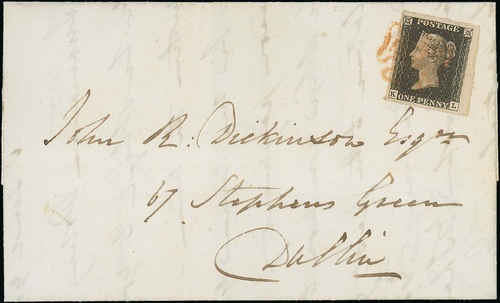 POSTAGE
K ONE PENNY L
John R. Dickinson Esqre
67 Stephens Green
Dublin